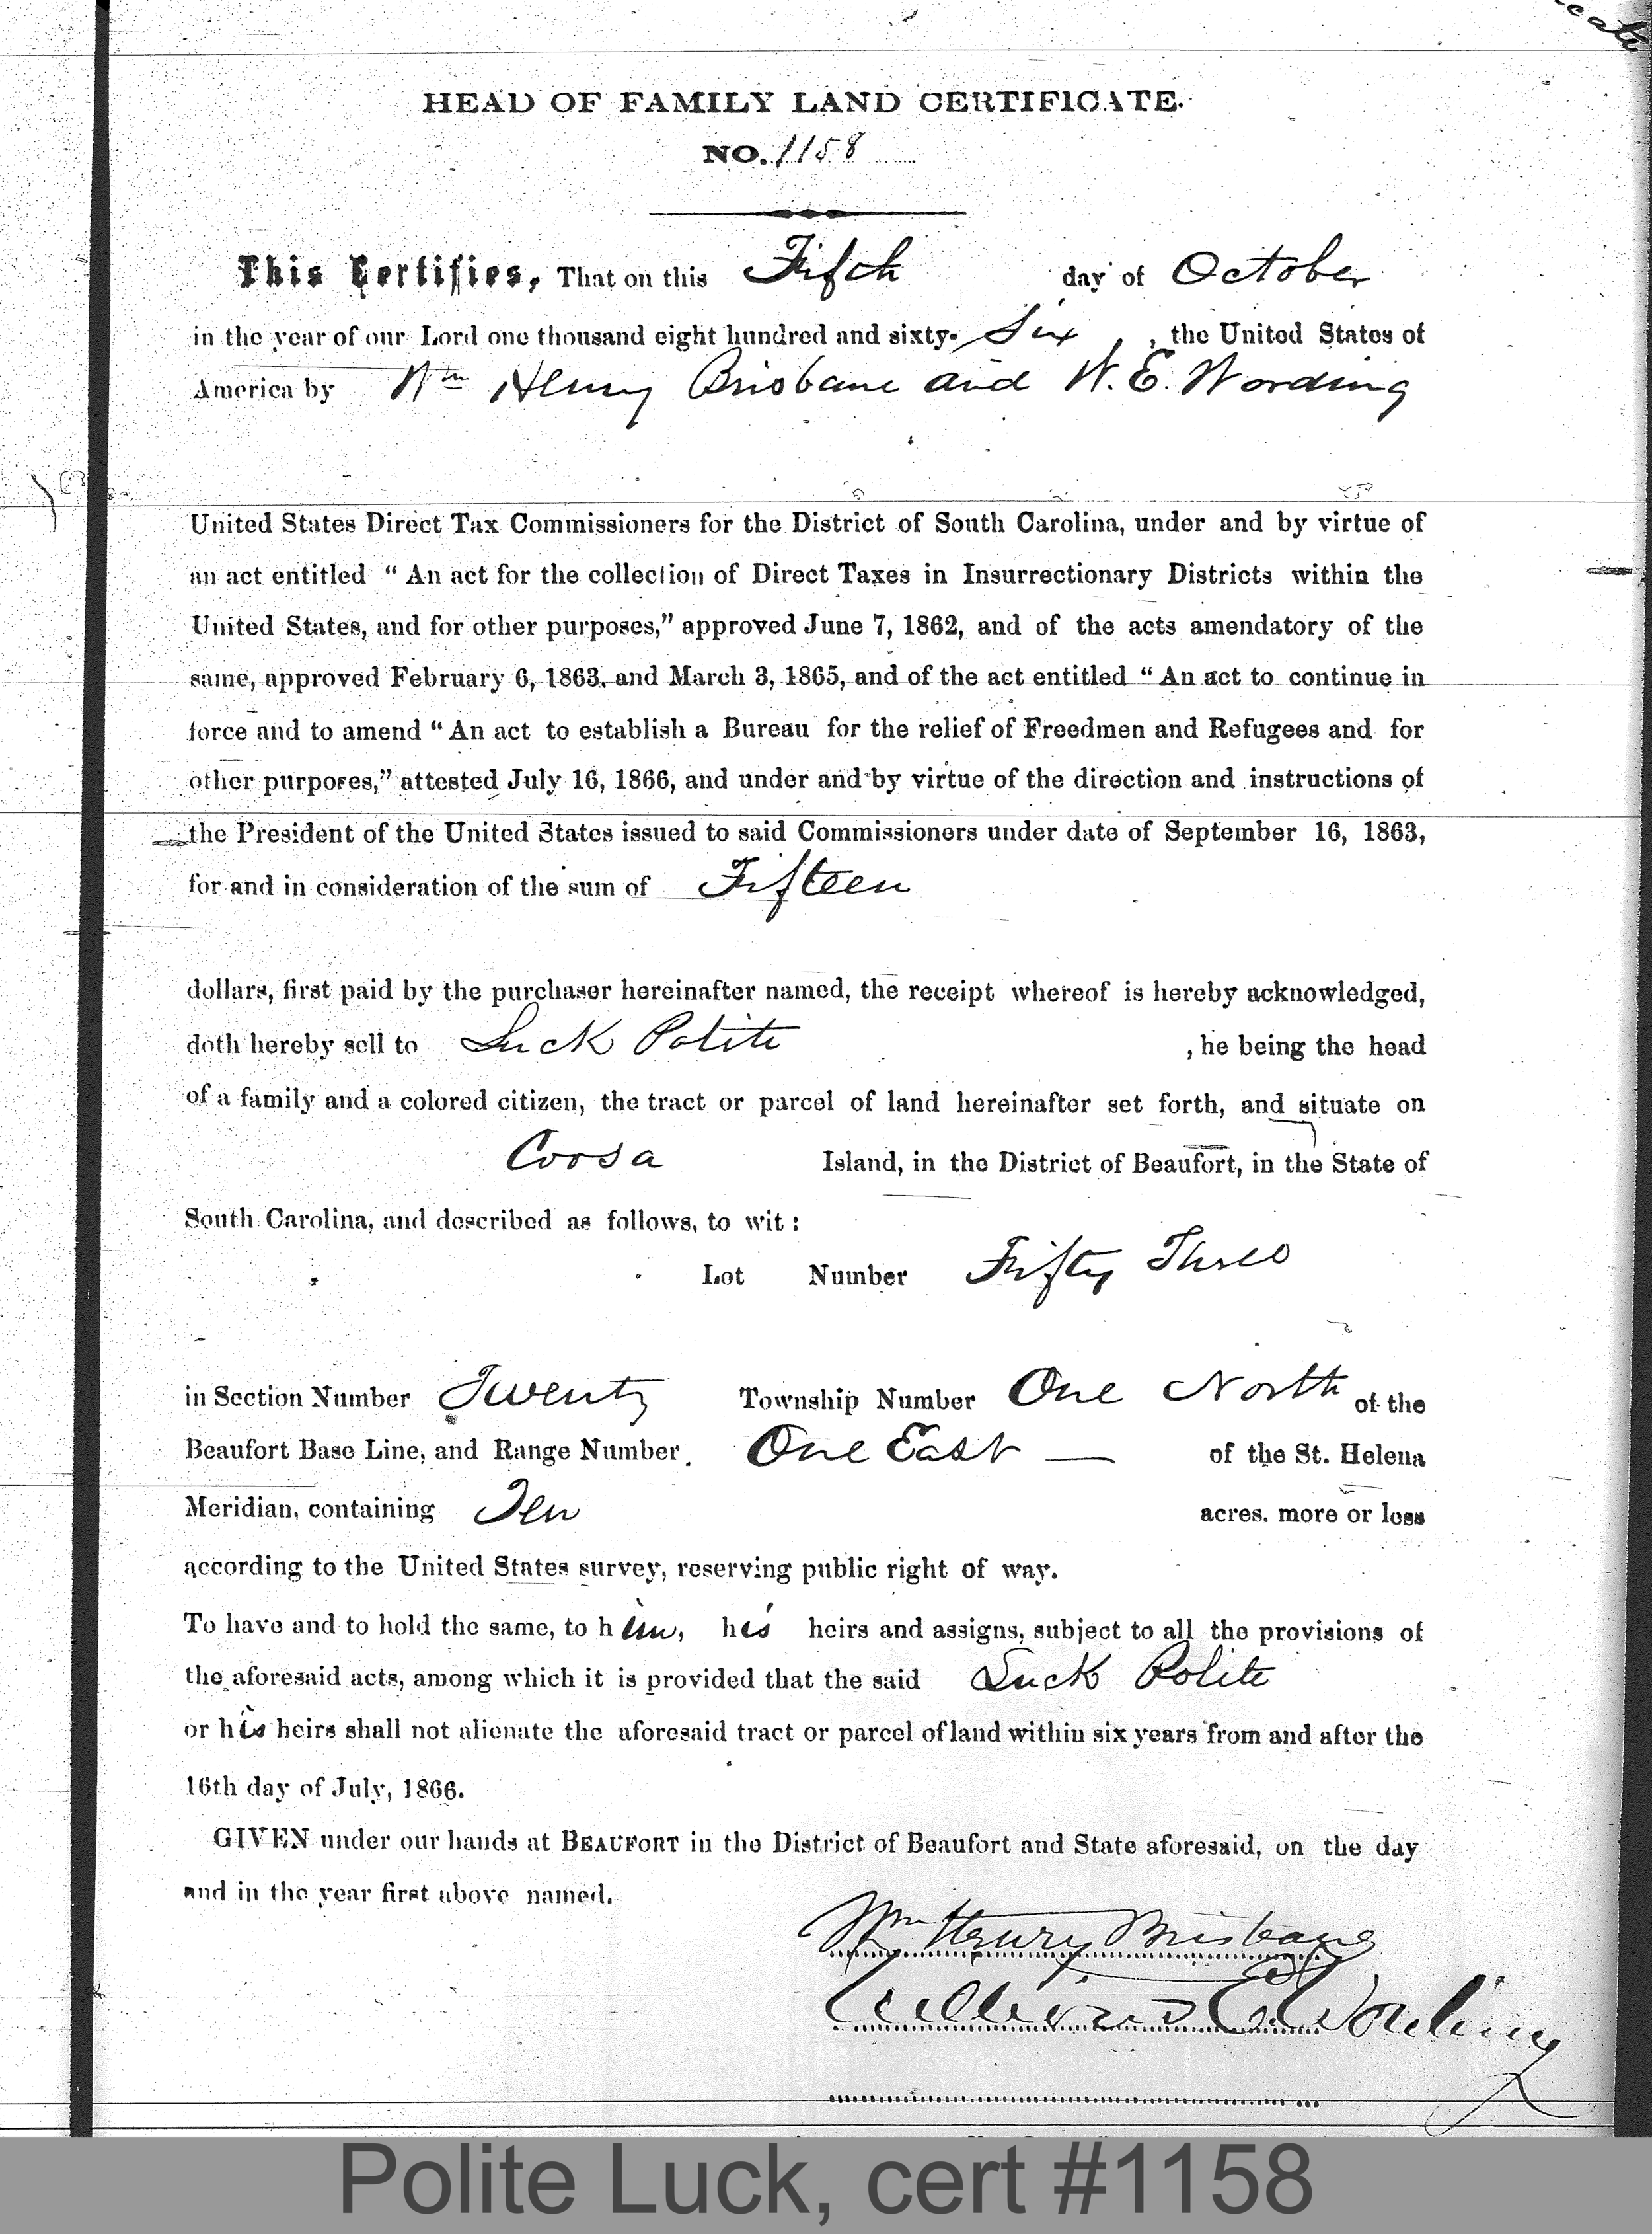 HEAD OF FAMILY LAND CERTIFICATE.
NO. 1158
This Certifies, That on this Fifth day of October
in the year of our Lord one thousand eight hundred and sixty-Six, the United States of
America by Wm Henry Brisbane and W. E. Wording
United States Direct Tax Commissioners for the District of South Carolina, under and by virtue of
an act entitled “An act for the collection of Direct Taxes in Insurrectionary Districts within the
United States, and for other purposes,” approved June 7, 1862, and of the acts amendatory of the
same, approved February 6, 1863, and March 3, 1865, and of the act entitled “An act to continue in
force and to amend “An act to establish a Bureau for the relief of Freedmen and Refugees and for
other purposes,” attested July 16, 1866, and under and by virtue of the direction and instructions of
the President of the United States issued to said Commissioners under date of September 16, 1863,
for and in consideration of the sum of Fifteen
dollars, first paid by the purchaser hereinafter named, the receipt whereof is hereby acknowledged,
doth hereby sell to Luck Polite, he being the head
of a family and a colored citizen, the tract or parcel of land hereinafter set forth, and situate on
Coosa Island, in the District of Beaufort, in the State of
South Carolina, and described as follows, to wit:
Lot Number Fifty Three
in Section Number Twenty Township Number One North of the
Beaufort Base Line, and Range Number One East — of the St. Helena
Meridian, containing Ten acres, more or less
according to the United States survey, reserving public right of way.
To have and to hold the same, to him, his heirs and assigns, subject to all the provisions of
the aforesaid acts, among which it is provided that the said Luck Polite
or his heirs shall not alienate the aforesaid tract or parcel of land within six years from and after the
16th day of July, 1866.
GIVEN under our hands at BEAUFORT in the District of Beaufort and State aforesaid, on the day
and in the year first above named.
Wm Henry Brisbane
William E. Wording
Polite Luck, cert #1158